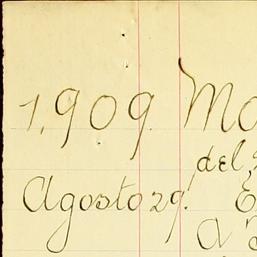 1,909 Mo
del
Agosto 29. E
a